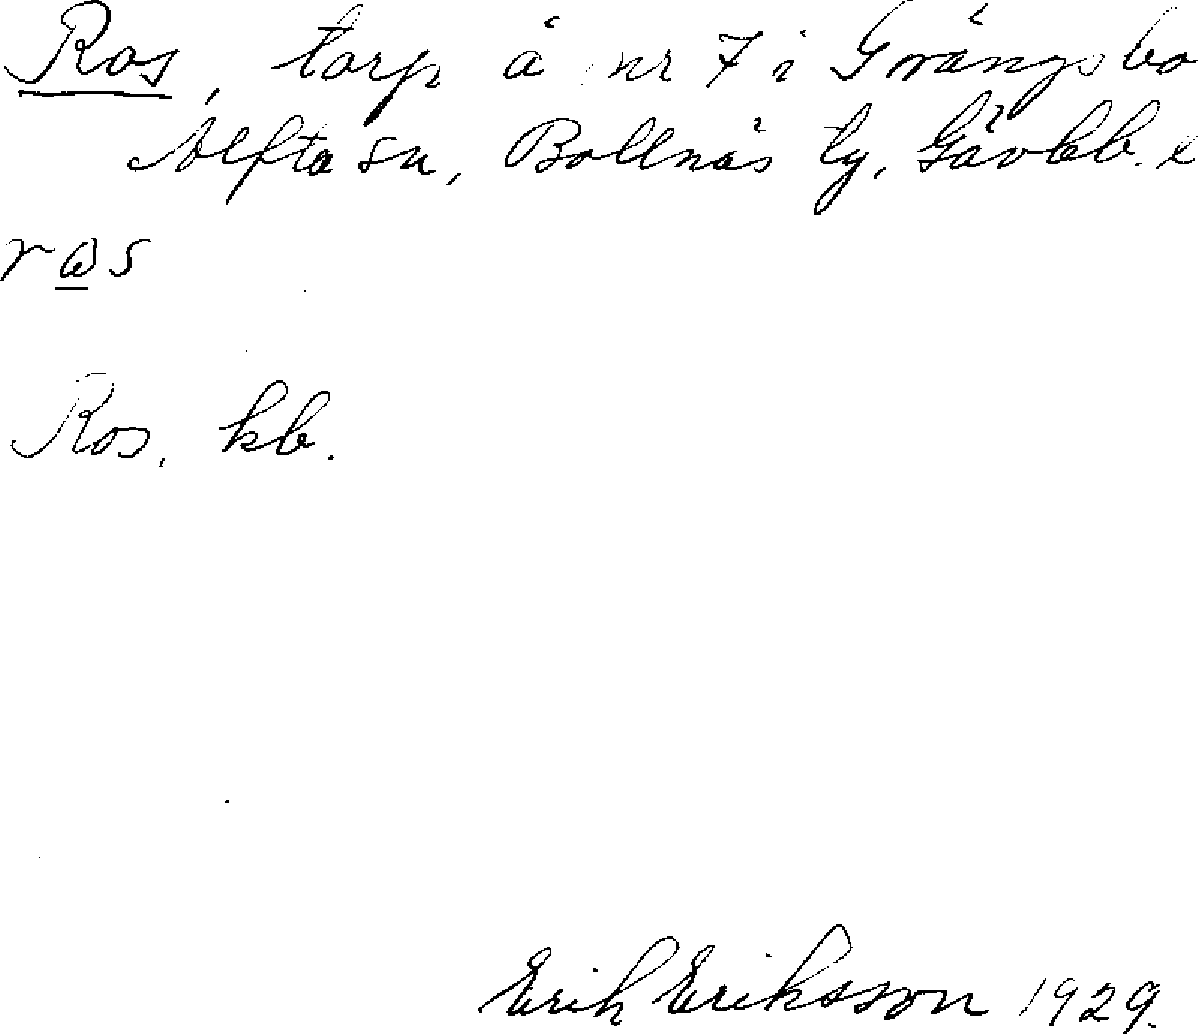 Ros, torp å nr 7 i Gvängsbo
Alfta sn, Bollnäs tg, Gävlebb. l
ros
Ros, kb.
Erik Eriksson 1929.